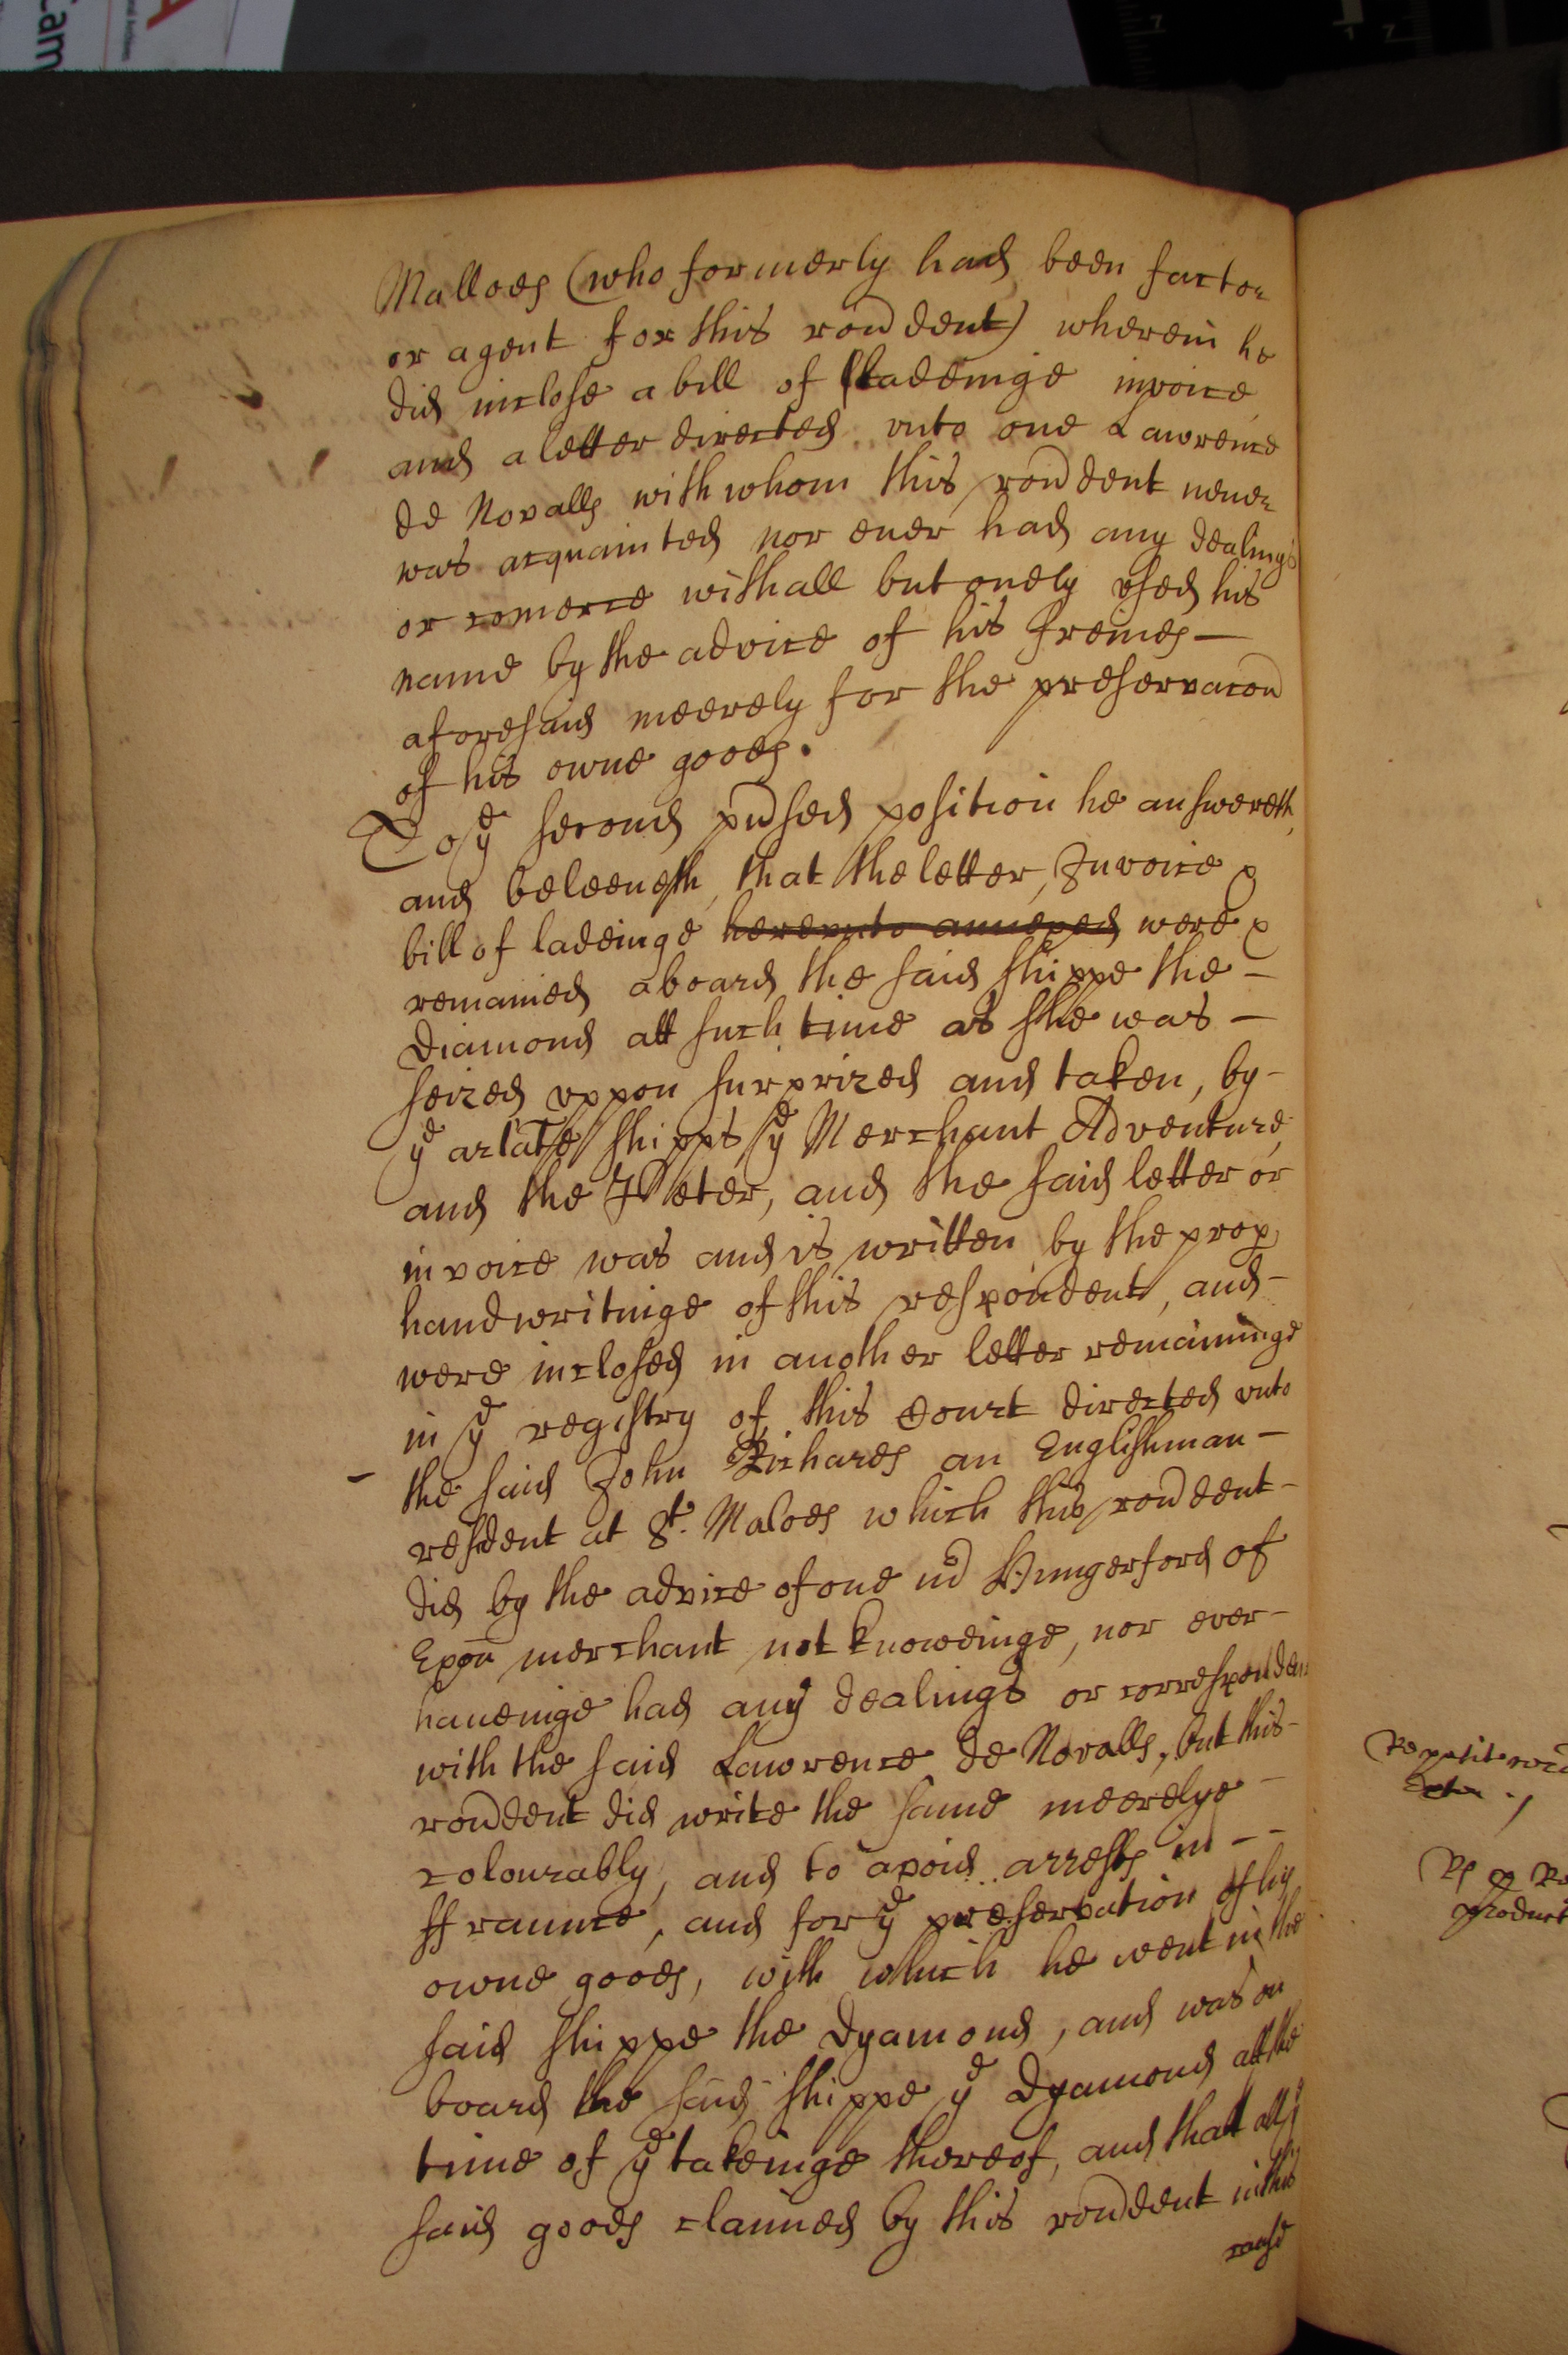 Malloes (who formerly had been factor
or agent for this rondent) wherein he
did inclose a bill of ladeinge invoice
and a letter directed vnto one Lawrence
de Novalls with whom this rondent neuer
was acquainted nor euer had any dealings
or comerce withall but onely vsed his
name by the advice of his freines -
aforesaid meerely for the preservacon
of his owne goods.
To ye second pnsed position he answereth,
and beleeueth, that the letter, Invoice &
bill of ladeinge herevnto annexed were &
remained aboard the said shippe the -
Diamond att such time as she was -
seized vppon surprized and taken, by -
ye arlate shipps ye Merchant Adventure
and the Peter, and the said letter or
invoice was and is written by the prop
handwritinge of this respondent, and -
were inclosed in another letter remaininge
in ye registry of this Court directed vnto
the said John Richards an Englishman -
resident at St. Maloes which this rondent -
did by the advice of one mr Hungerford of
Exon merchant not knoweinge, nor ever -
haueinge had any dealings or corresponden
with the said Lawrence de Novalls, but this -
rondent did write the same meerelye -
colourably, and to avoid arrests in - -
ffraunce, and for ye preservation of his
owne goods, with which he went in the
said shippe the Dyamond, and was on
board the said shippe ye Dyamond att the
time of ye takeinge thereof, and that all ye
said goods claimed by this rondent in this
cause